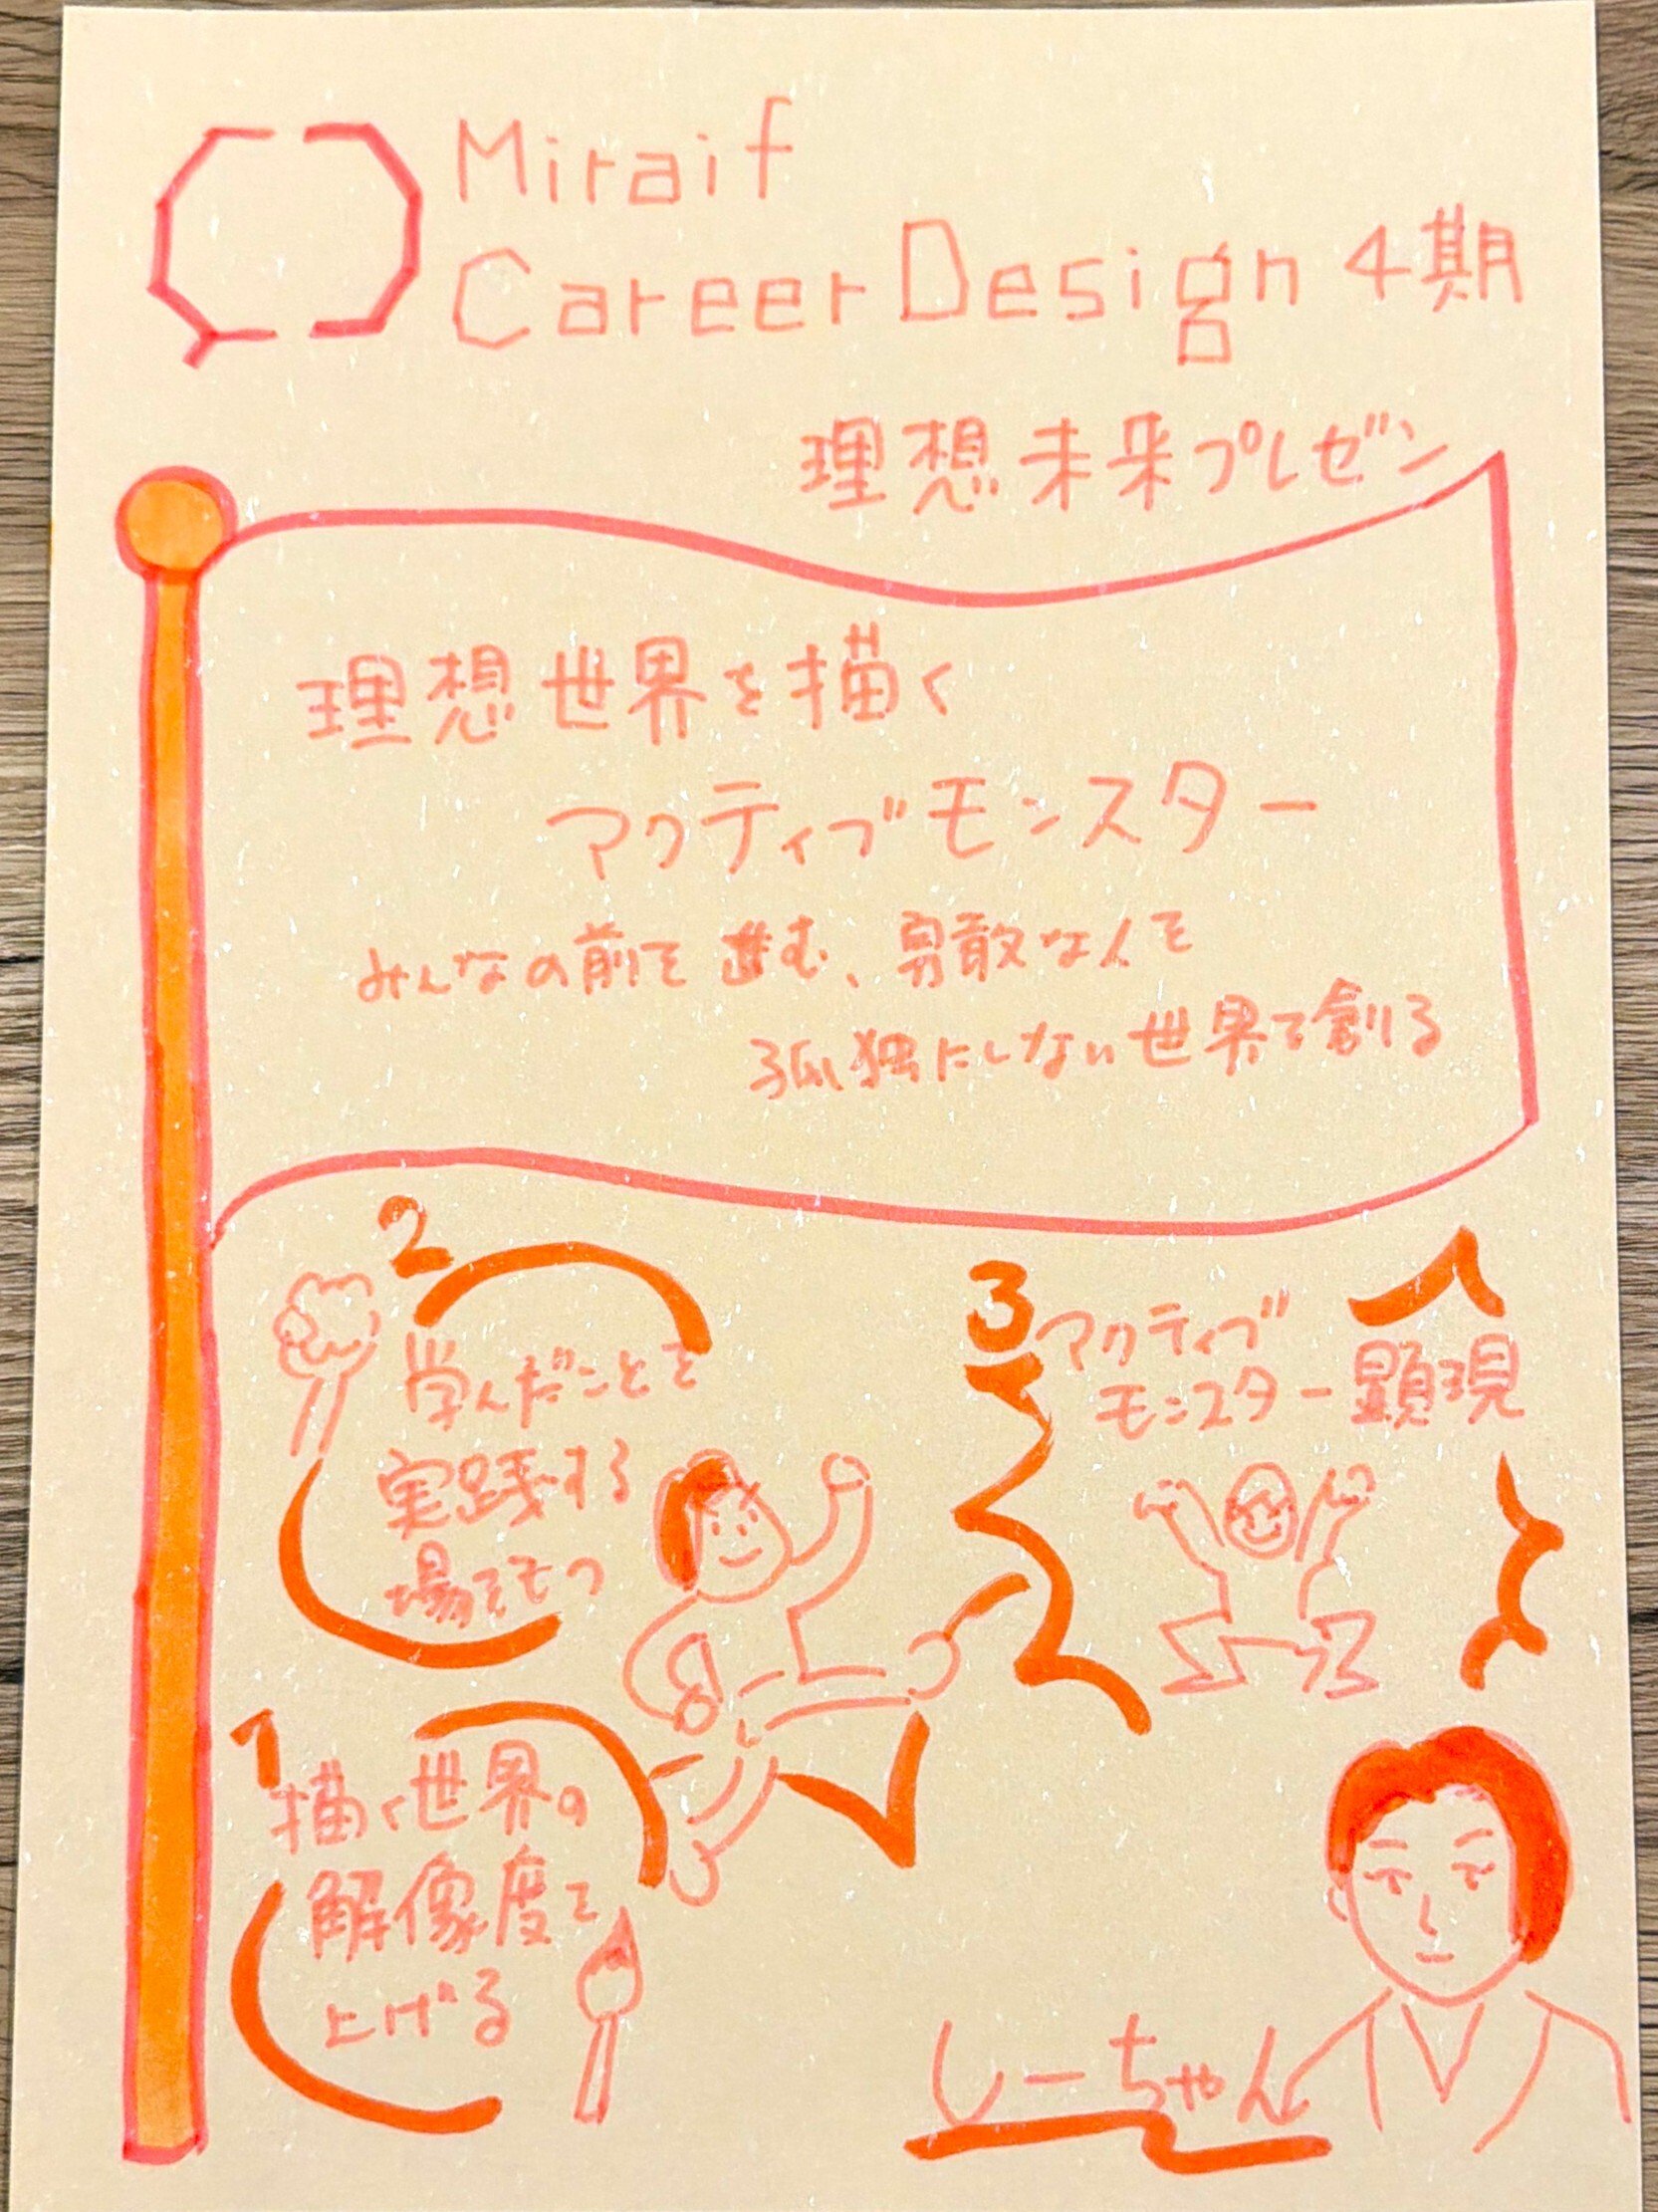 Miraif
Career Design 4期
理想未来プレゼン
理想世界を描く
アクティブモンスター
みんなの前を進む、勇敢な人を
孤独にしない世界を創る
2
学んだことを
実践する
場をもつ
3
アクティブ
モンスター顕現
1
描く世界の
解像度を
上げる
しーちゃん